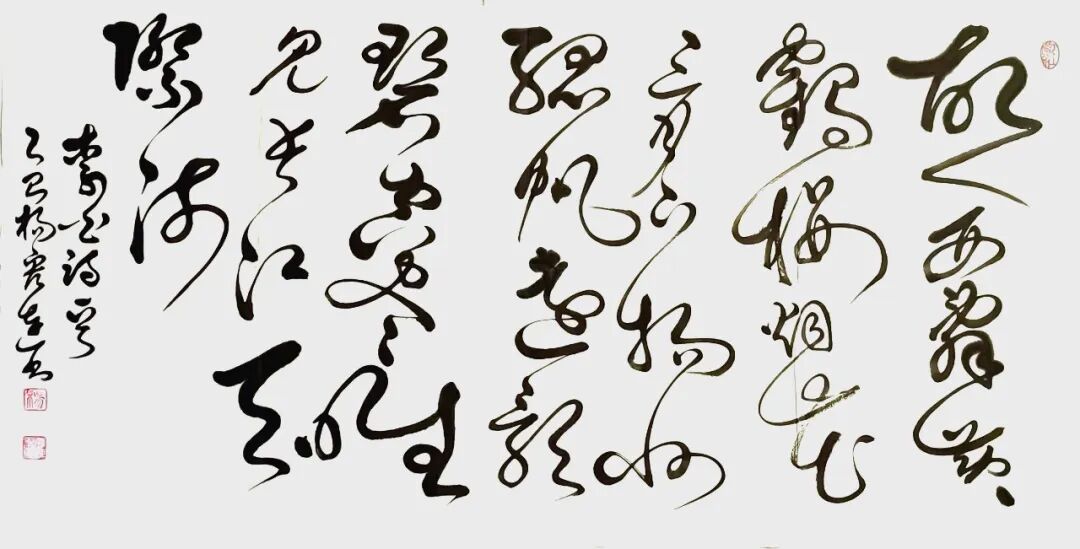 故人西辭黃
鶴樓烟花
三月下揚州
孤帆遠影
碧空盡唯
見長江天
際流
李白詩
乙巳楊